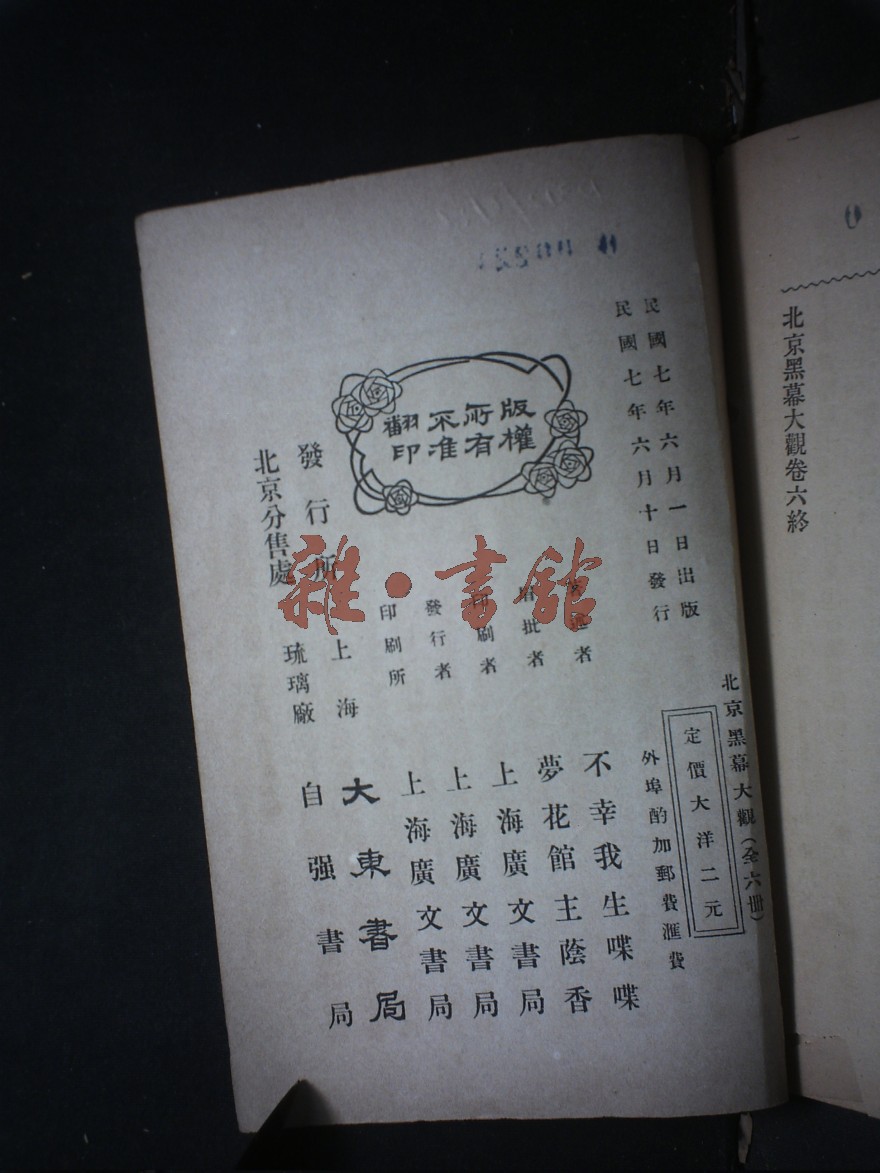 北京黑幕大觀卷六終
民國七年六月一日出版
民國七年六月十日發行
版權所有不准翻印
北京黑幕大觀(全六册)
定價大洋二元
外埠酌加郵費滙費
者 不幸我生喋喋
批者 夢花館主蔭香
印刷者 上海廣文書局
發行者 上海廣文書局
印刷所 上海廣文書局
發行所 上海 大東書局
北京分售處 琉璃廠 自强書局
雜·書館